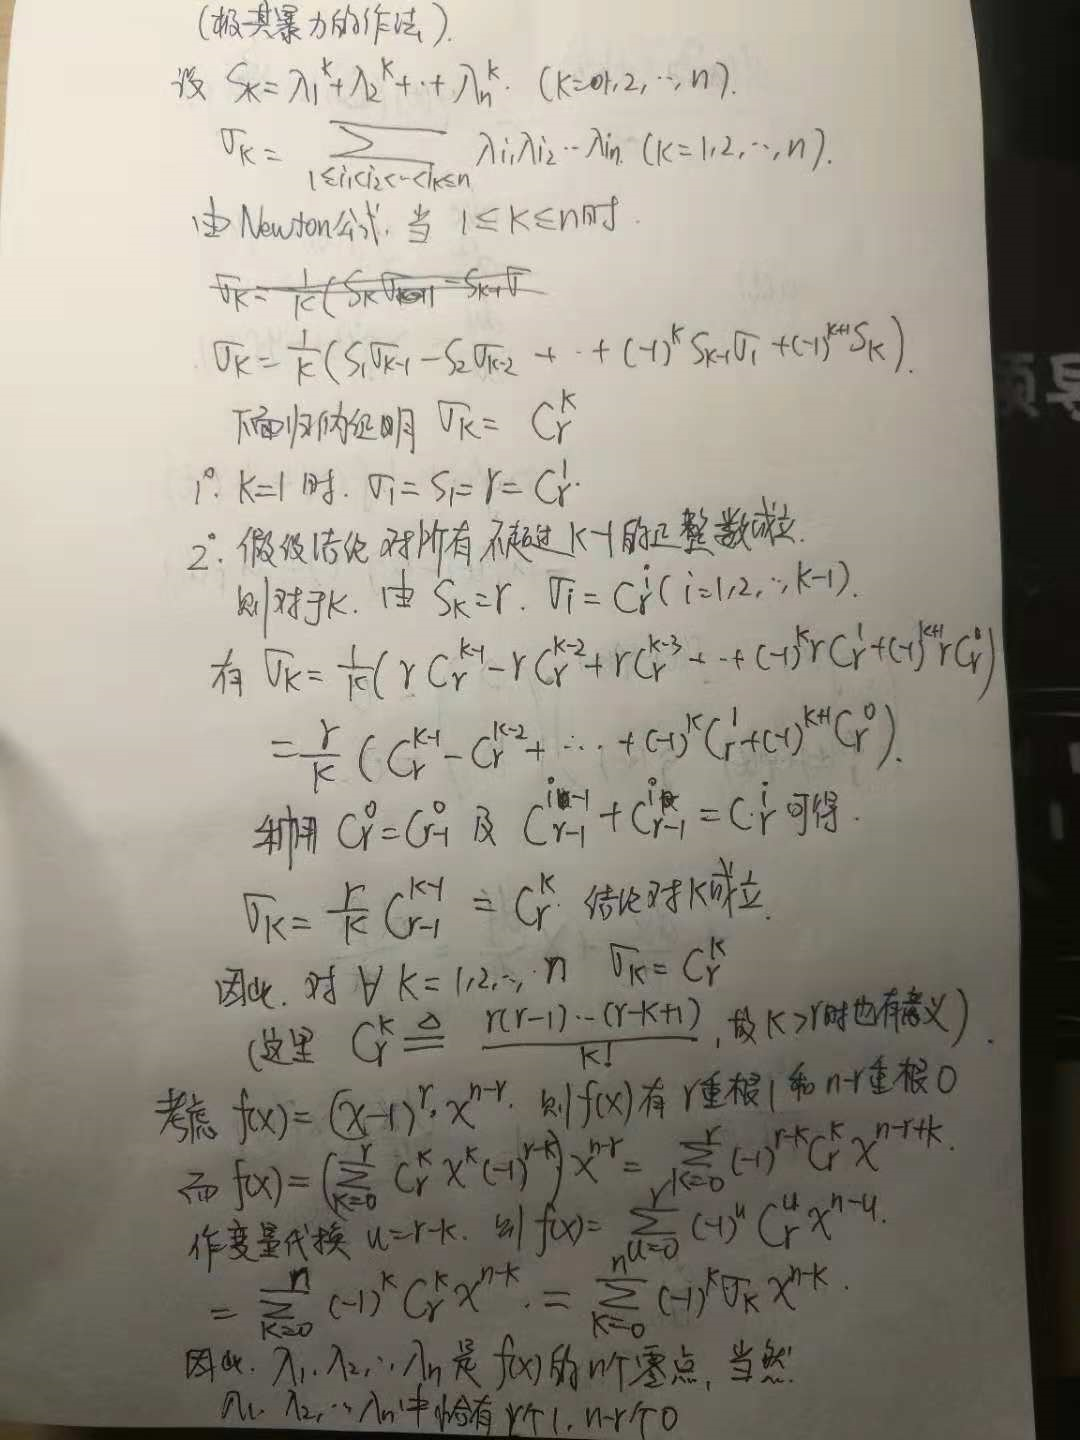 (极其暴力的作法).
设 S_K = λ_1^K + λ_2^K + ⋯ + λ_n^K. (K=0,1,2,⋯,n).
σ_K = ∑_{1≤i_1<i_2<⋯<i_K≤n} λ_{i_1}λ_{i_2}⋯λ_{i_n}. (K=1,2,⋯,n).
由Newton公式. 当 1≤K≤n时.
σ_K = 1/K (S_1σ_{K-1} - S_2σ_{K-2} + ⋯ + (-1)^K S_{K-1}σ_1 + (-1)^{K+1} S_K).
下面归纳证明 σ_K = C_r^K
1°. K=1 时. σ_1 = S_1 = r = C_r^1.
2°. 假设结论对所有不超过K-1的正整数成立.
则对于K. 由 S_K = r. σ_i = C_r^i (i=1,2,⋯,K-1).
有 σ_K = 1/K (r C_r^{K-1} - r C_r^{K-2} + r C_r^{K-3} + ⋯ + (-1)^K r C_r^1 + (-1)^{K+1} r C_r^0)
= r/K (C_r^{K-1} - C_r^{K-2} + ⋯ + (-1)^K C_r^1 + (-1)^{K+1} C_r^0).
利用 C_r^0 = C_{r-1}^0 及 C_{r-1}^{i-1} + C_{r-1}^i = C_r^i 可得.
σ_K = r/K C_{r-1}^{K-1} = C_r^K. 结论对K成立.
因此. 对 ∀ K=1,2,⋯,n σ_K = C_r^K
(这里 C_r^K ≜ r(r-1)⋯(r-K+1)/K!, 故K>r时也有意义).
考虑 f(x) = (x-1)^r · x^{n-r}. 则f(x)有 r重根1和n-r重根0
而 f(x) = (∑_{K=0}^r C_r^K x^K (-1)^{r-K}) x^{n-r} = ∑_{K=0}^r (-1)^{r-K} C_r^K x^{n-r+K}.
作变量代换 u=r-K. 则 f(x) = ∑_{u=0}^r (-1)^u C_r^u x^{n-u}.
= ∑_{K=0}^n (-1)^K C_r^K x^{n-K}. = ∑_{K=0}^n (-1)^K σ_K x^{n-K}.
因此. λ_1. λ_2,⋯, λ_n 是 f(x)的n个零点, 当然.
λ_1. λ_2,⋯ λ_n 中恰有 r个1, n-r个0